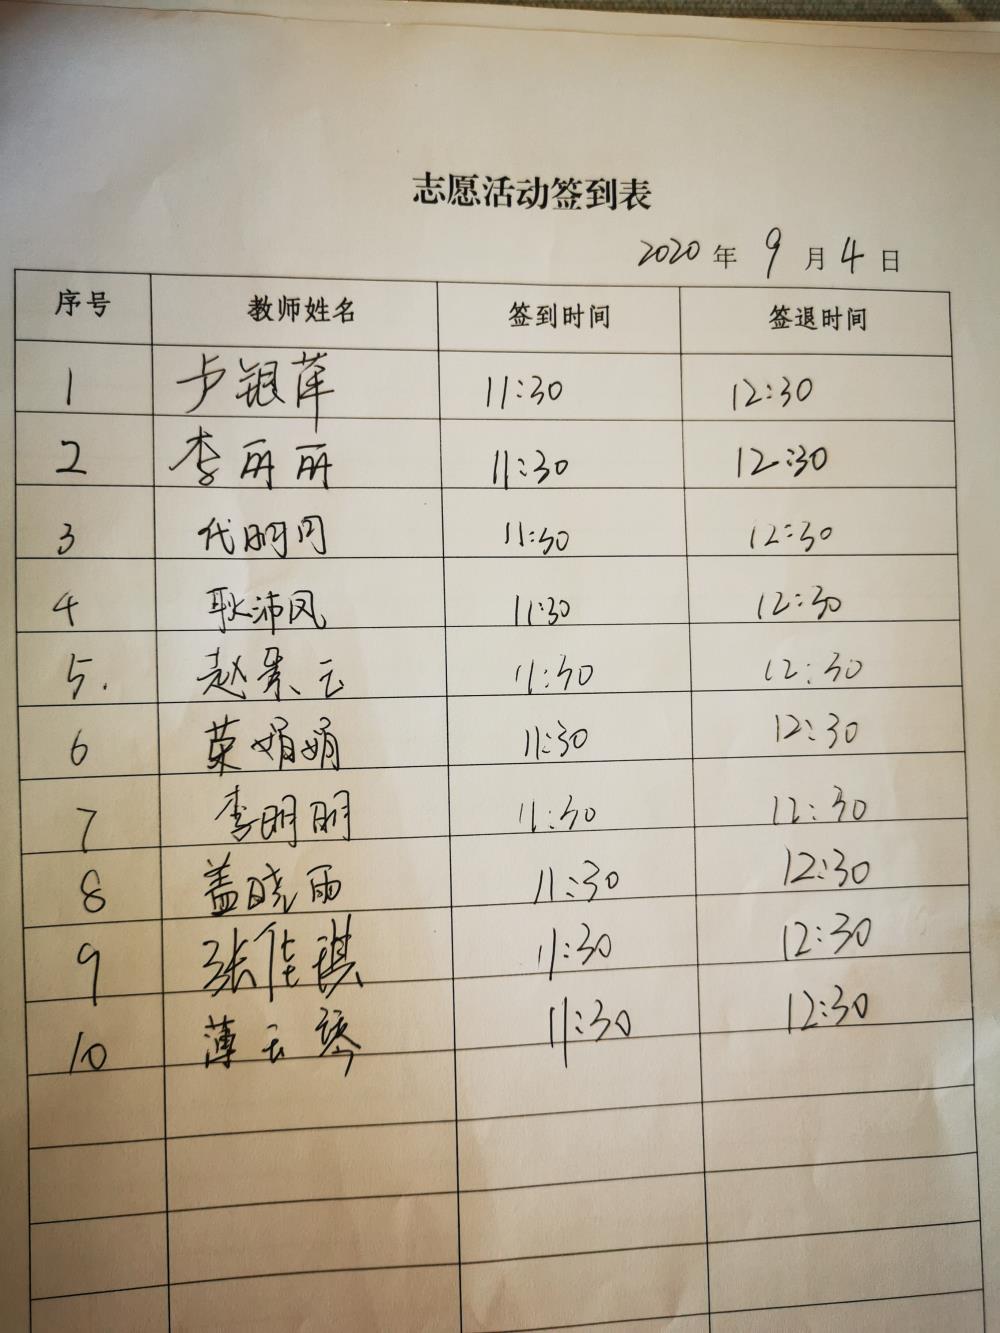 志愿活动签到表
2020年9月4日
序号 教师姓名 签到时间 签退时间
1 卢银萍 11:30 12:30
2 李丽丽 11:30 12:30
3 代明月 11:30 12:30
4 耿沛风 11:30 12:30
5. 赵景云 11:30 12:30
6 荣娟娟 11:30 12:30
7 李明明 11:30 12:30
8 盖晓雨 11:30 12:30
9 张佳琪 11:30 12:30
10 薄云琴 11:30 12:30